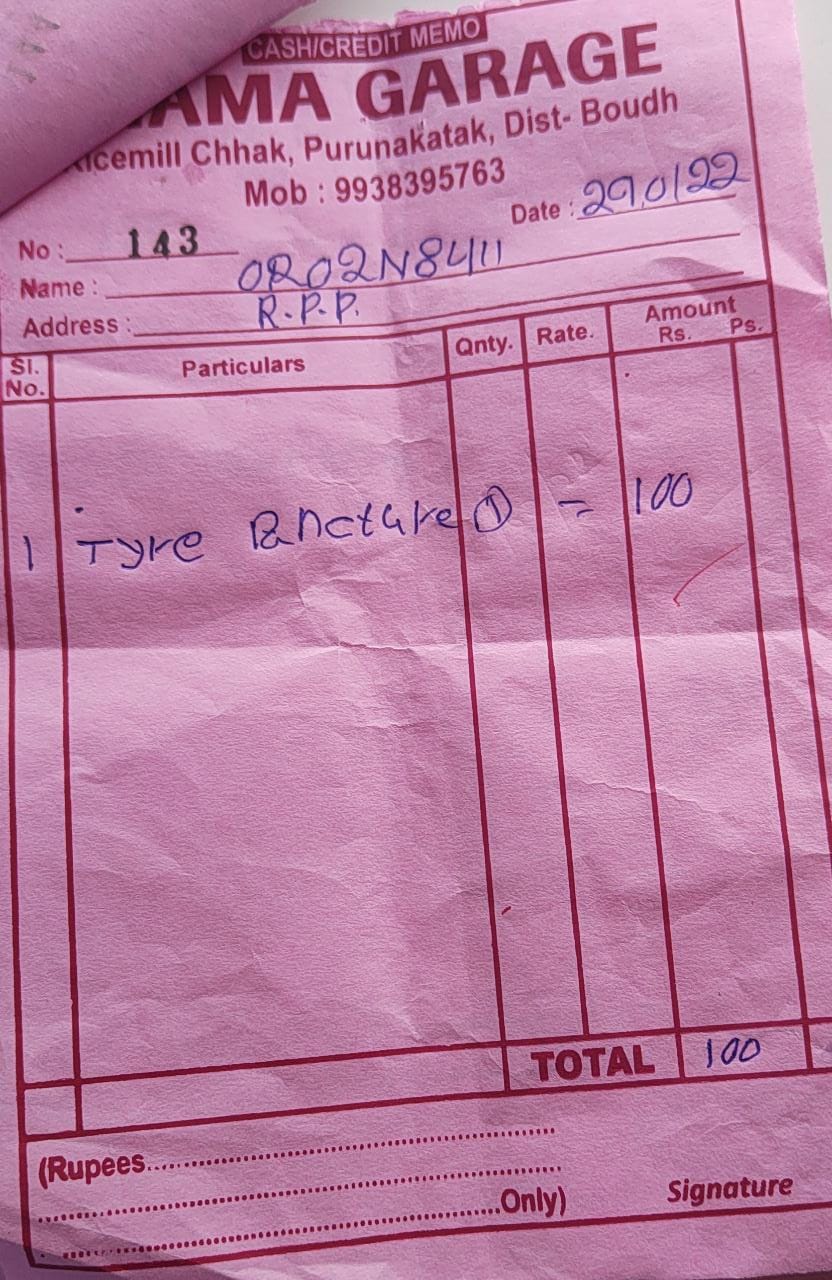 CASH/CREDIT MEMO
AMA GARAGE
icemill Chhak, Purunakatak, Dist- Boudh
Mob : 9938395763
Date : 290122
No : 143
Name : OR02N8411
Address : R.P.P.
Sl. No. Particulars Qnty. Rate. Amount Rs. Ps.
1 Tyre Puncture ① = 100
TOTAL 100
(Rupees
Only) Signature